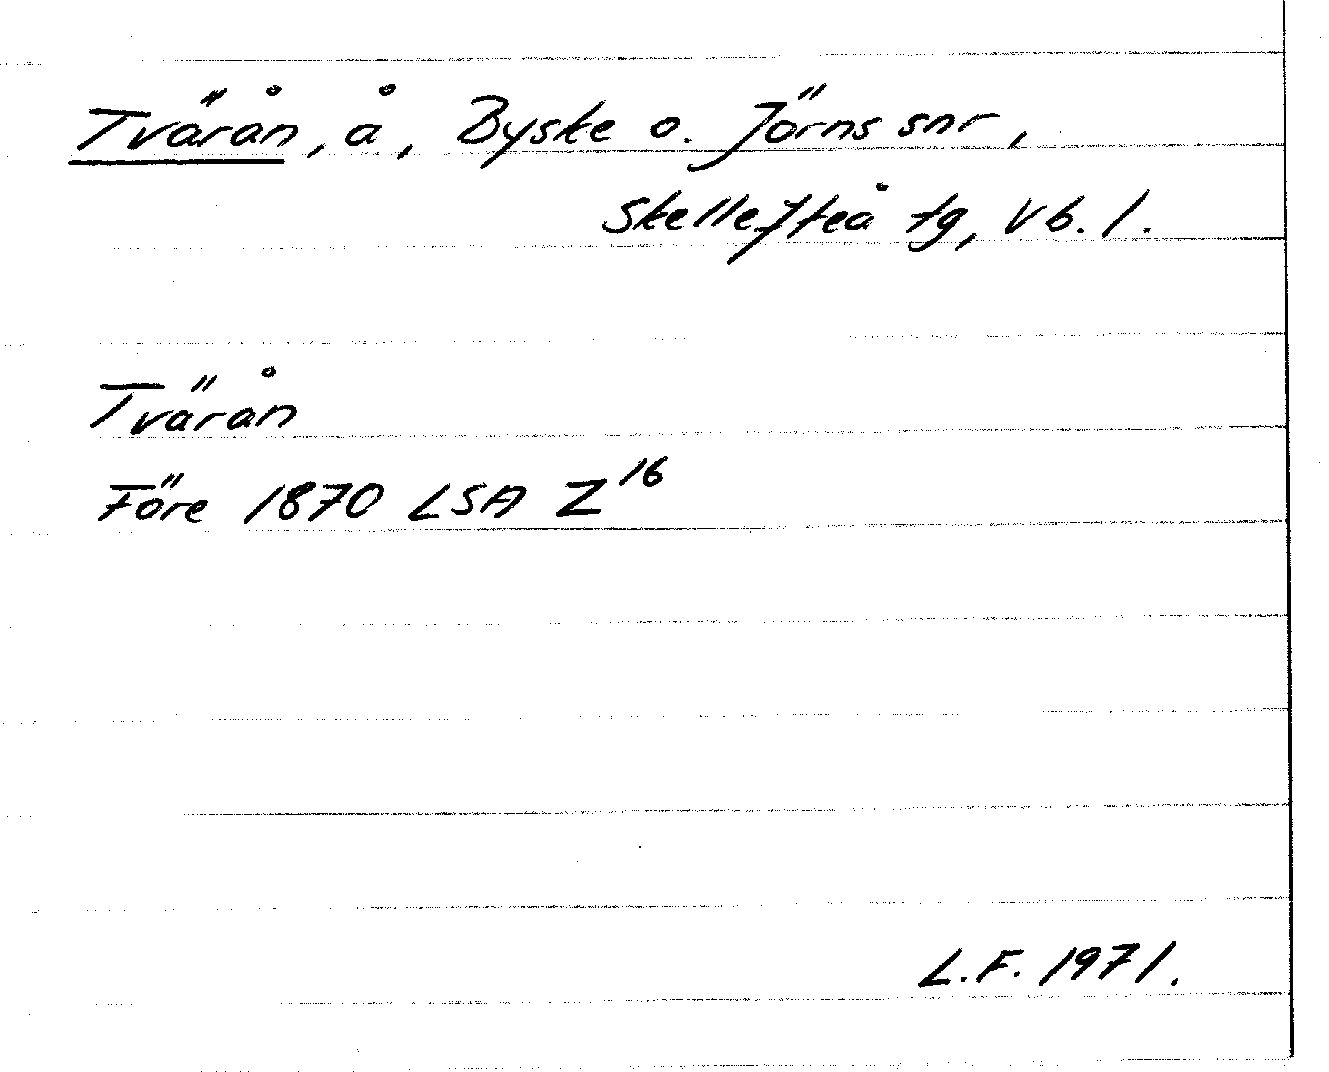 Tvärån, å, Byske o. Jörns snr,
Skellefteå tg, Vb. l.
Tvärån
Före 1870 LSA Z¹⁶
L.F. 1971.